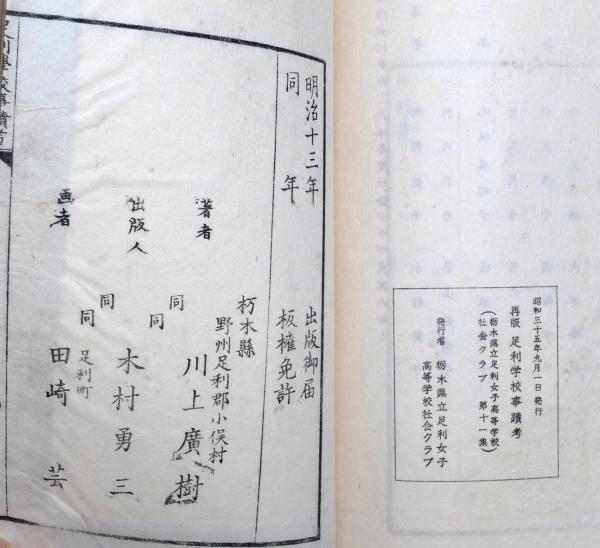 昭和三十五年九月一日 発行
再版 足利学校事蹟考
(栃木県立足利女子高等学校
社会クラブ 第十一集)
発行者 栃木県立足利女子
高等学校社会クラブ
明治十三年 出版御届
同 年 板権免許
朽木縣
野州足利郡小俣村
著者 同 川上廣樹
同
出版人 木村勇三
同 足利町
画者 同 田崎 芸
足利學校事蹟考